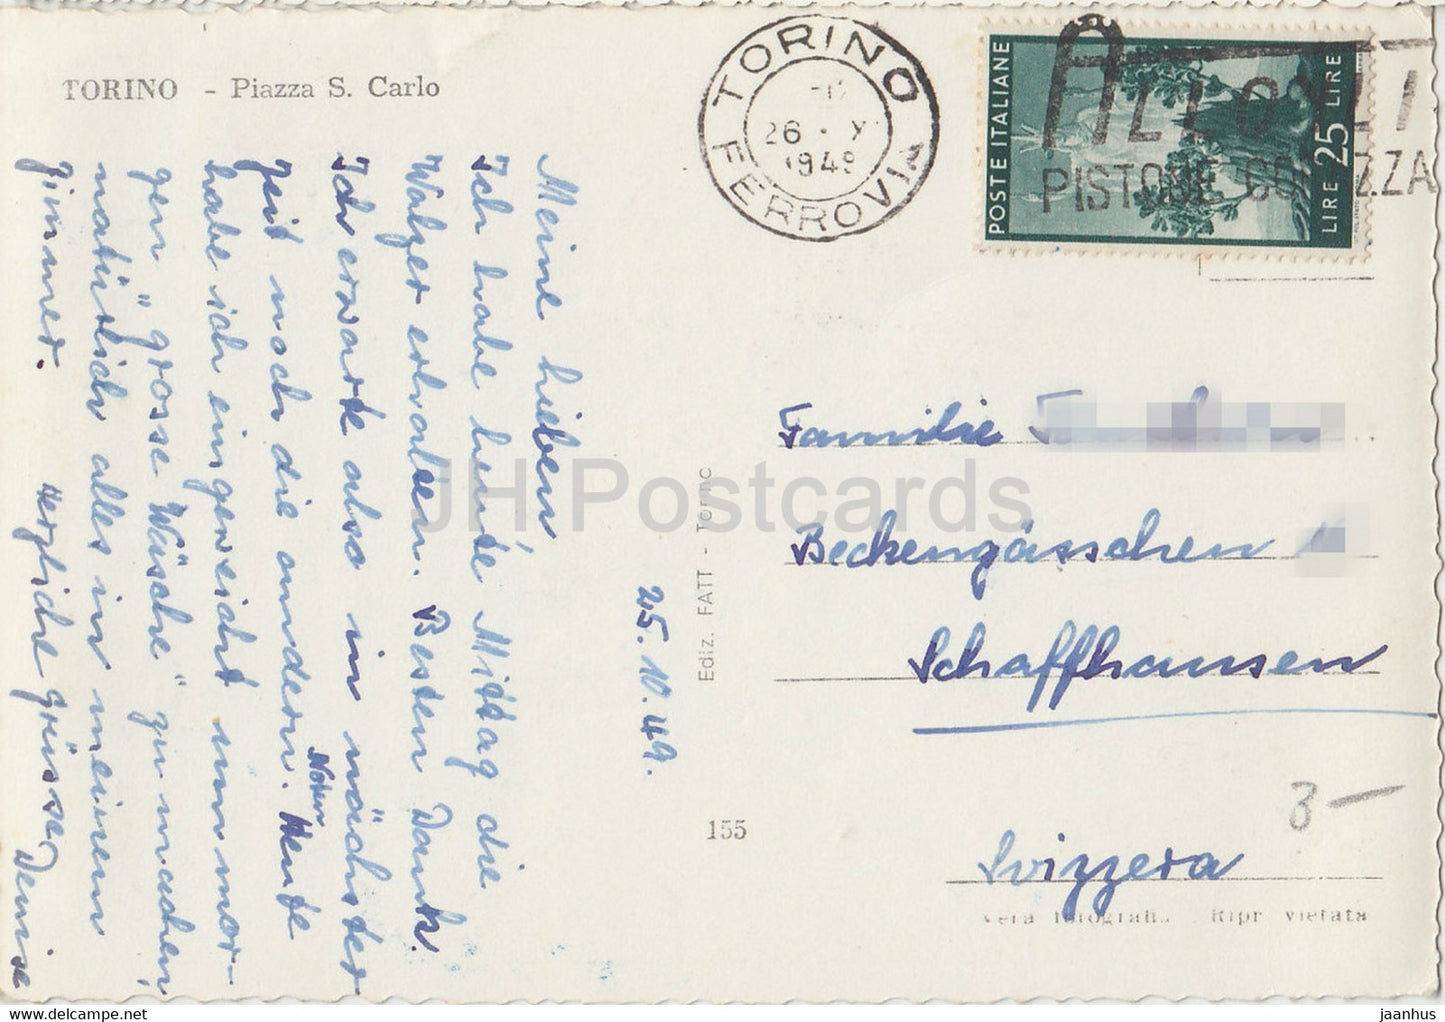 TORINO - Piazza S. Carlo
Meine lieben
Ich habe heute Mittag die
Walzer erhalten. Besten Dank.
Ich erwarte also in nächster
Zeit noch die andern Noten. Heute
habe ich eingeweicht um mor-
gen "grosse Wäsche" zu machen,
natürlich alles in meinem
Zimmer.
Herzliche Grüsse Denise
25.10.49.
Ediz. FATT - Torino
155
TORINO
FERROVIA
26 . X
1949
POSTE ITALIANE
LIRE 25 LIRE
PISTONE
Familie
Beckengässchen
Schaffhausen
Svizzera
3 -
Vera fotografia Ripr vietata
JH Postcards
jaanhus